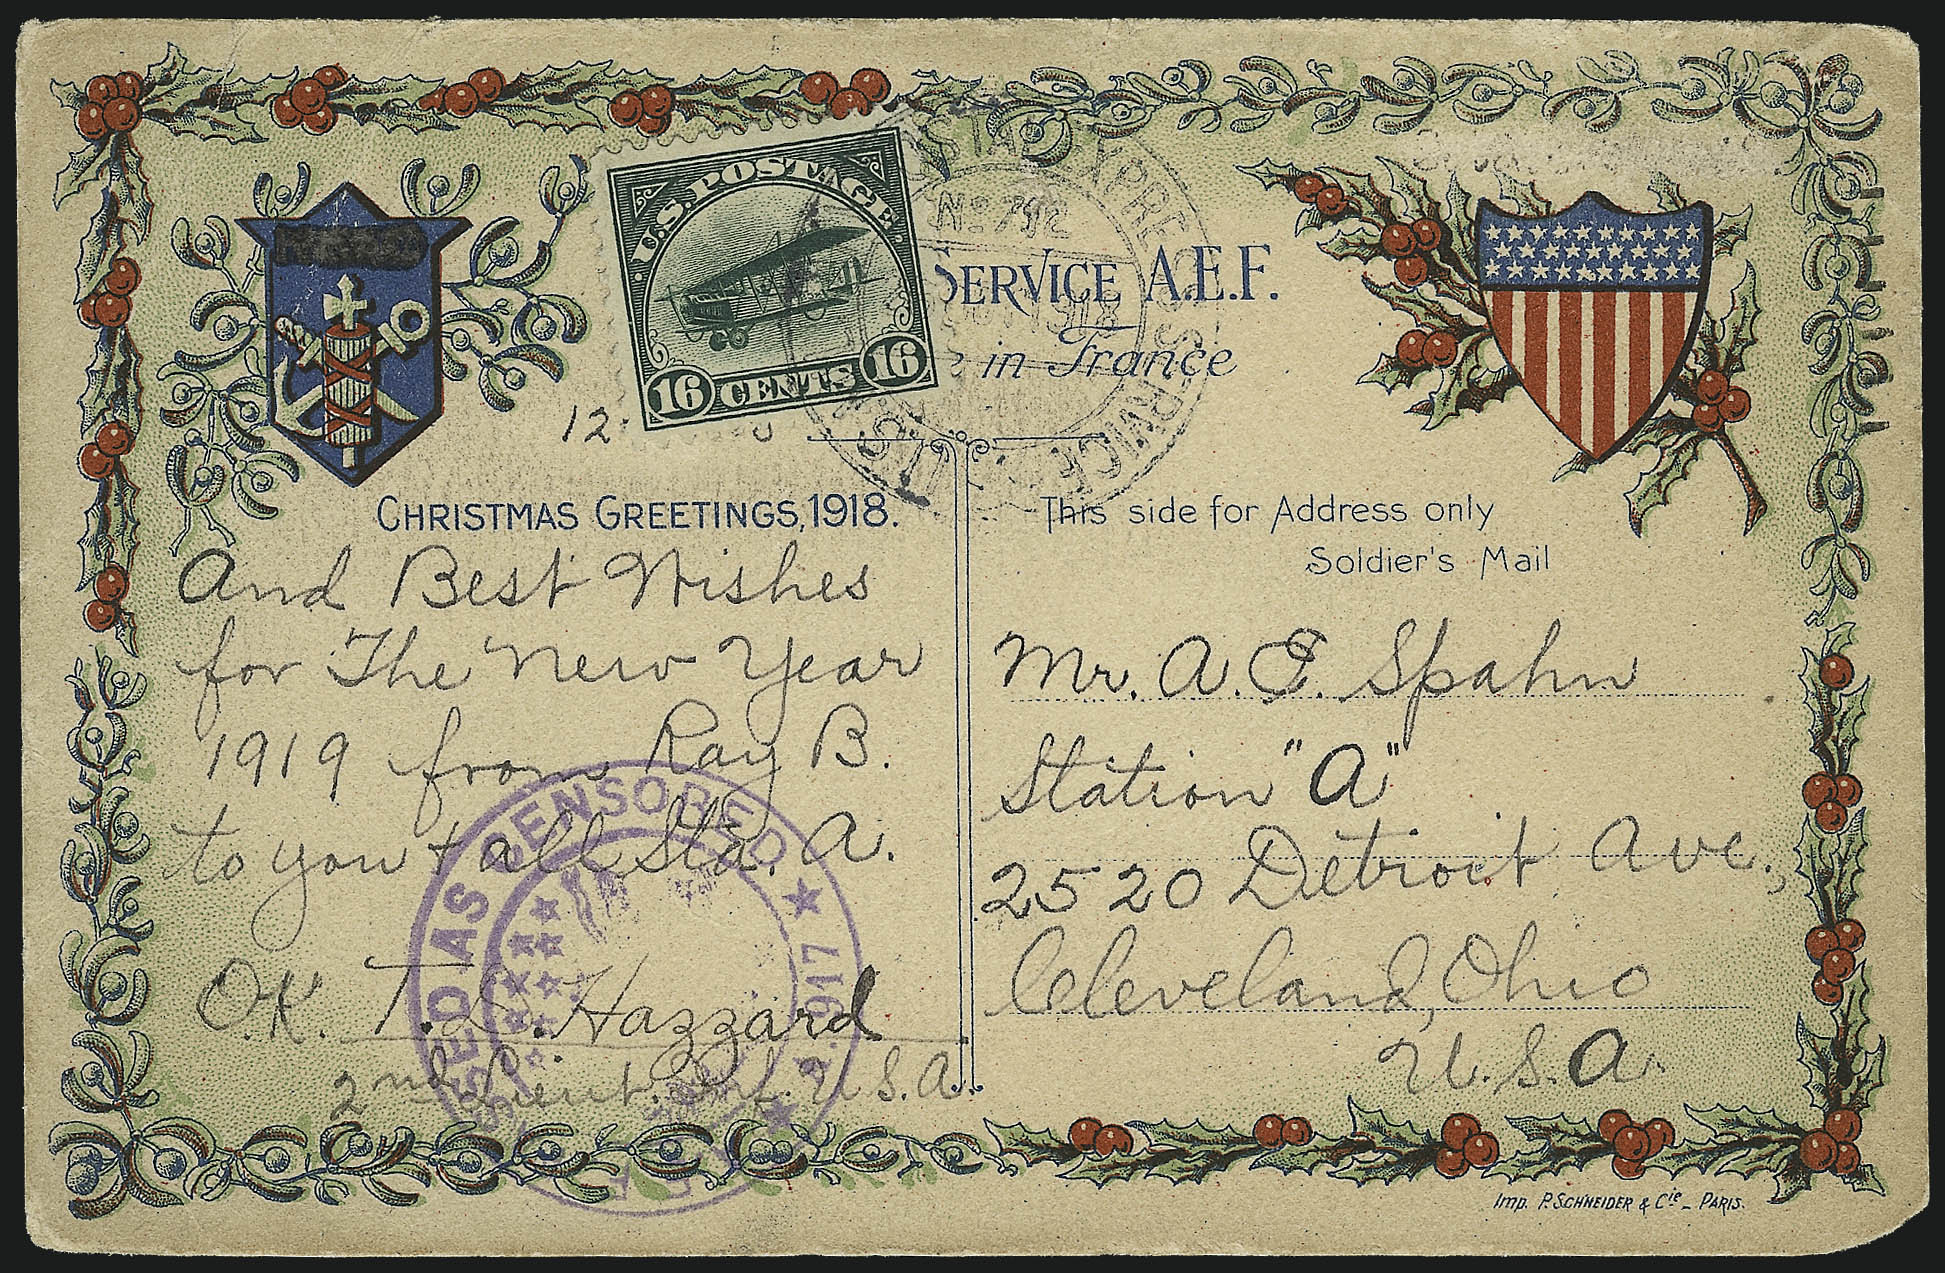 U.S. POSTAGE
16 CENTS 16
POSTAL EXPRESS SERVICE
No. 792
1918
SERVICE A.E.F.
in France
12
CHRISTMAS GREETINGS, 1918.
And Best Wishes
for The New Year
1919 from Ray B.
to you + all Sta. A.
O.K. T. D. Hazzard
2nd Lieut. Inf. U.S.A.
This side for Address only
Soldier's Mail
Mr. A. E. Spahn
Station "A"
2520 Detroit Ave.,
Cleveland, Ohio
U.S.A.
PASSED AS CENSORED
A.917
Imp. P. SCHNEIDER & Cie _ PARIS.